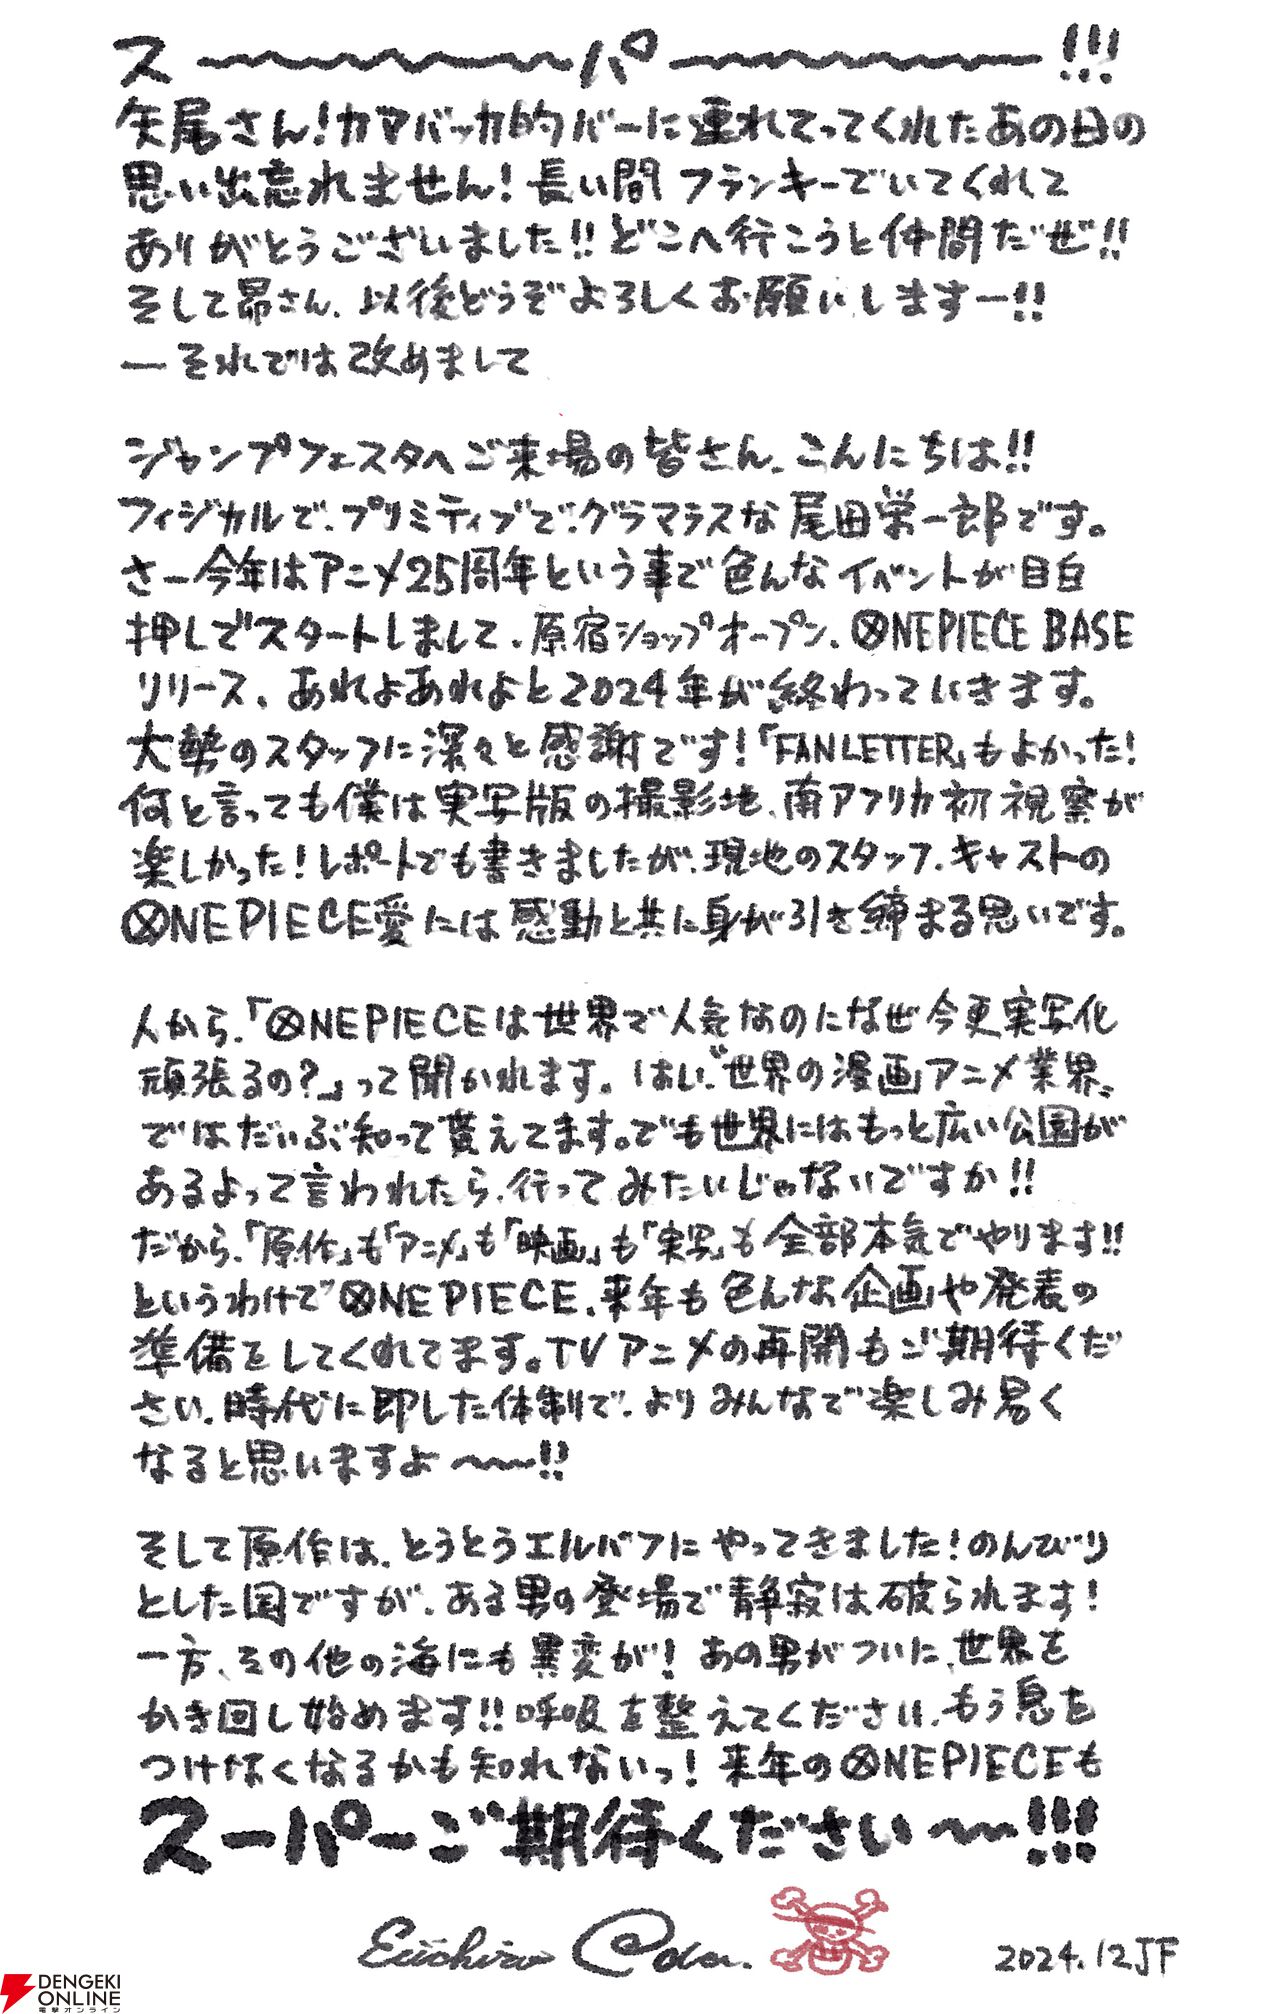 ス〜〜〜〜パ〜〜〜〜!!!
矢尾さん!カマバッカ的バーに連れてってくれたあの日の
思い出忘れません!長い間フランキーでいてくれて
ありがとうございました!!どこへ行こうと仲間だぜ!!
そして昴さん、以後どうぞよろしくお願いしますー!!
ーそれでは改めまして
ジャンプフェスタへご来場の皆さん、こんにちは!!
フィジカルで、プリミティブで、グラマラスな尾田栄一郎です。
さー今年はアニメ25周年という事で色んなイベントが目白
押しでスタートしまして、原宿ショップオープン、ONE PIECE BASE
リリース、あれよあれよと2024年が終わっていきます。
大勢のスタッフに深々と感謝です!「FAN LETTER」もよかった!
何と言っても僕は実写版の撮影地、南アフリカ初視察が
楽しかった!レポートでも書きましたが、現地のスタッフ、キャストの
ONE PIECE愛には感動と共に身が引き締まる思いです。
人から、「ONE PIECEは世界で人気なのになぜ今更実写化
頑張るの?」って聞かれます。はい、〝世界の漫画アニメ業界〟
ではだいぶ知って貰えてます。でも世界にはもっと広い公園が
あるよって言われたら、行ってみたいじゃないですか!!
だから、「原作」も「アニメ」も「映画」も「実写」も全部本気でやります!!
というわけでONE PIECE、来年も色んな企画や発表の
準備をしてくれてます。TVアニメの再開もご期待くだ
さい、時代に即した体制で、よりみんなで楽しみ易く
なると思いますよ〜〜!!
そして原作は、とうとうエルバフにやってきました!のんびり
とした国ですが、ある男の登場で静寂は破られます!
一方、その他の海にも異変が!あの男がついに、世界を
かき回し始めます!!呼吸を整えてください、もう息を
つけなくなるかも知れないっ!来年のONE PIECEも
スーパーご期待ください〜〜!!!
Eiichiro Oda.
2024.12 JF
DENGEKI
ONLINE
電撃オンライン